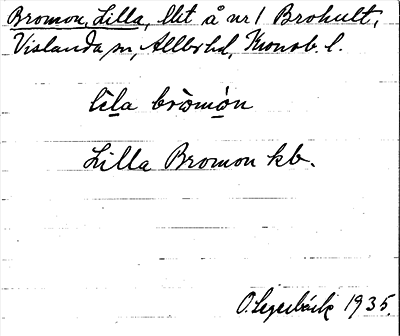 Bromon, Lilla, lht å nr 1 Brohult,
Vislanda sn, Allbo hd, Kronob. l.
lila bròmón
Lilla Bromon kb.
1935.